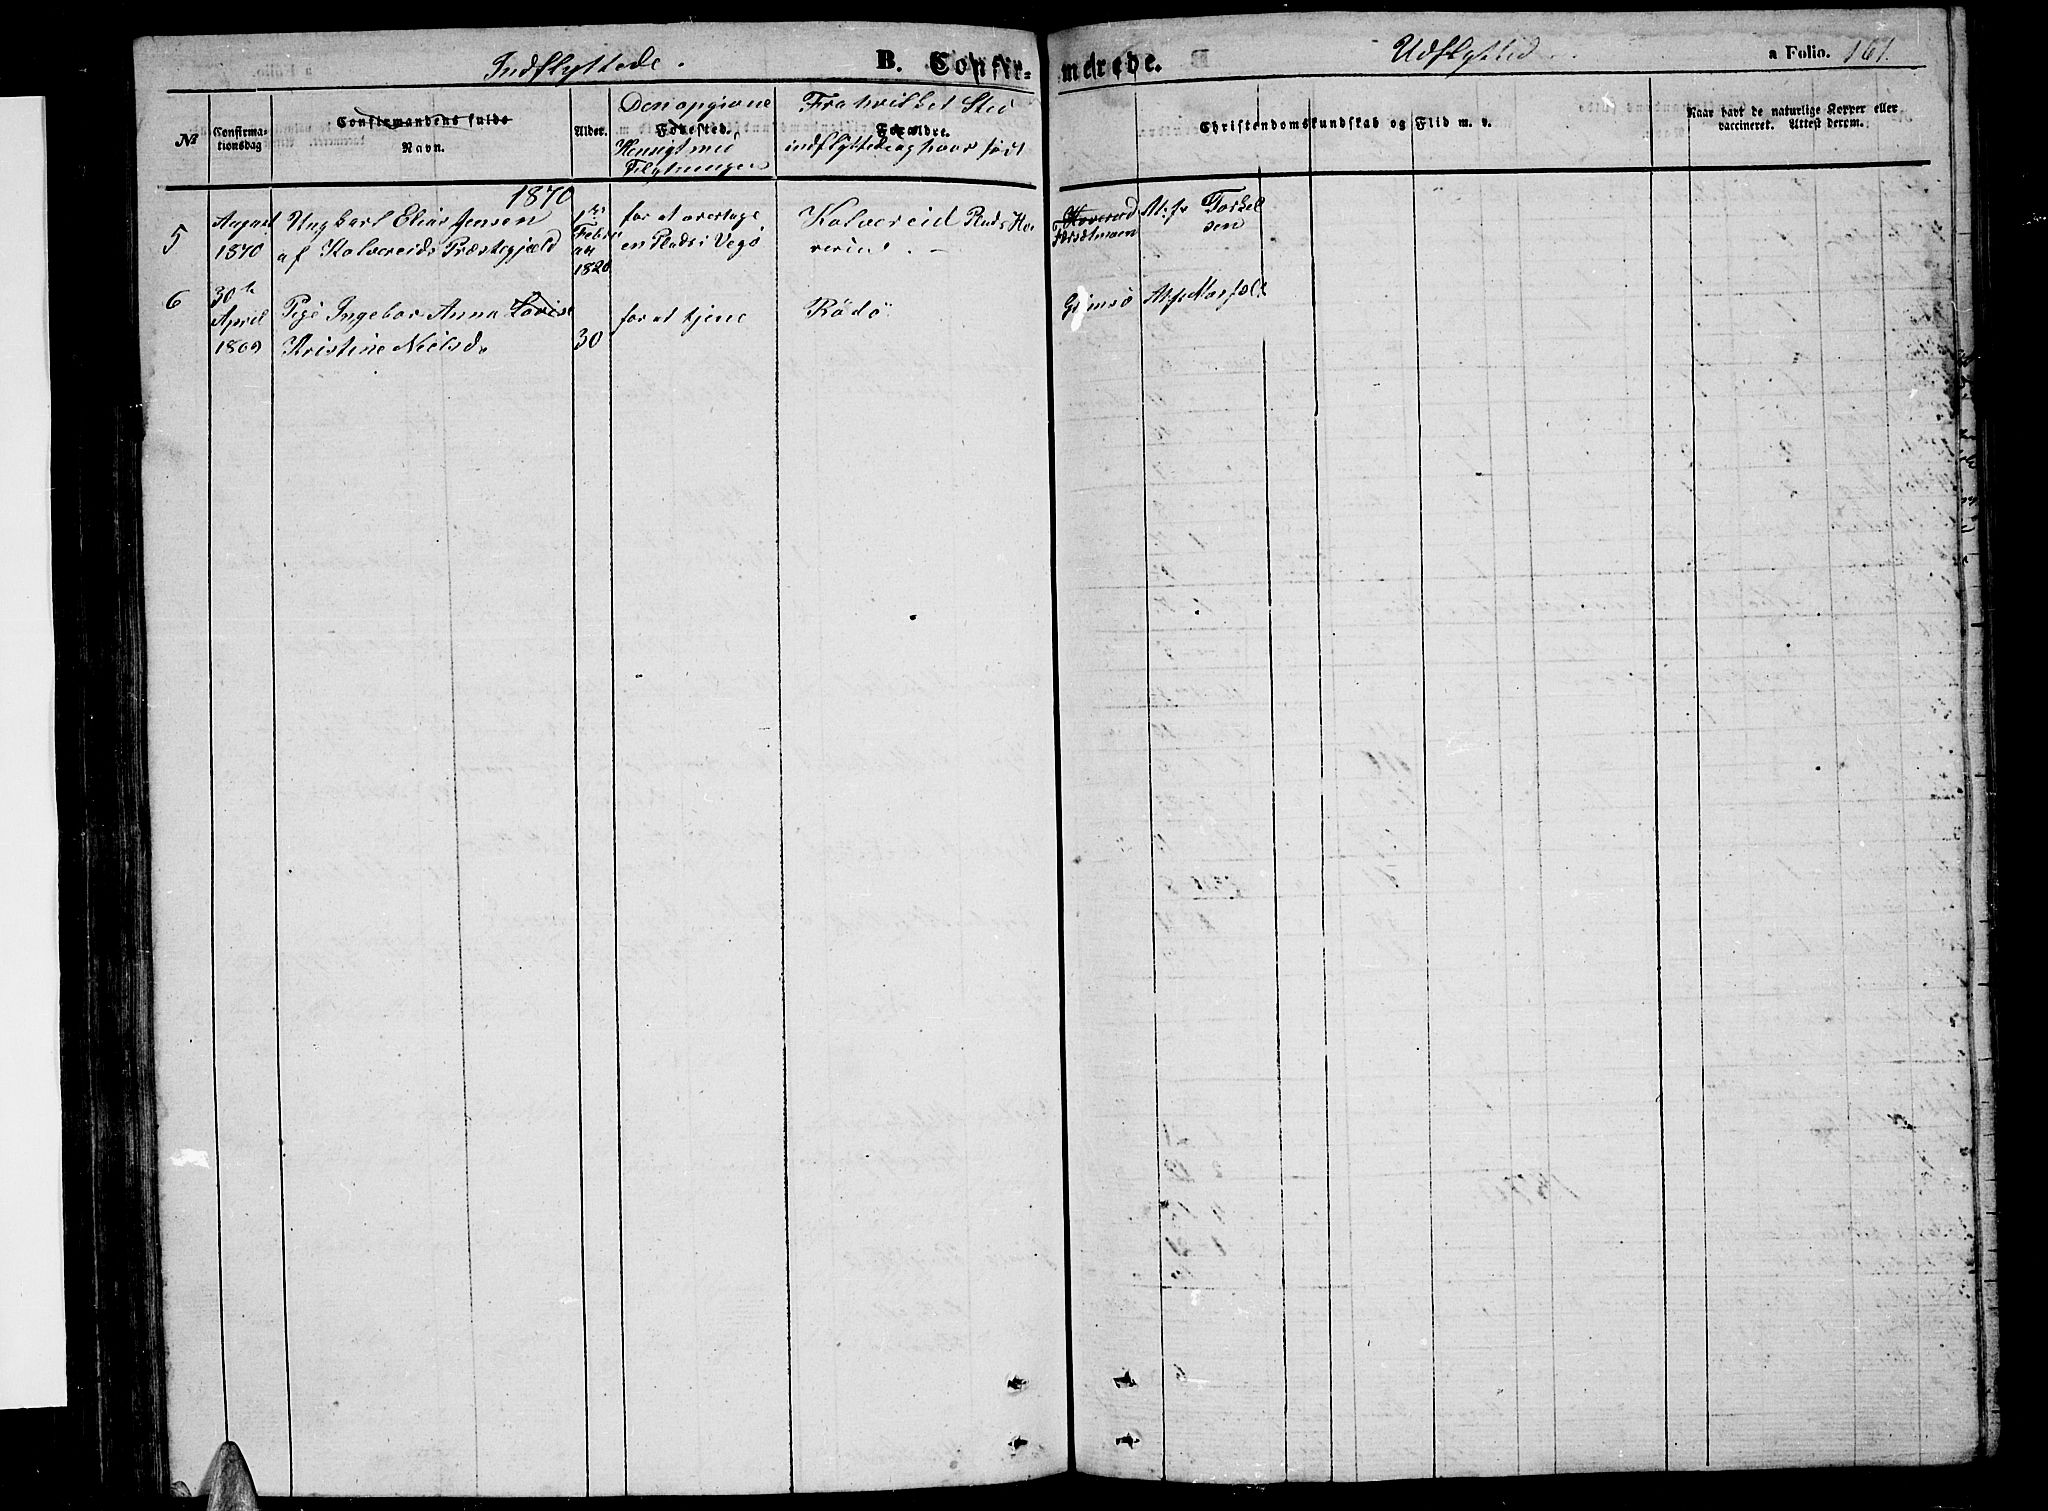 Indflyttede.
B. Confir-
merede.
Udflytted
a Folio. 161.
No
Confirma-
tionsdag
Confirmandens fulde
Navn.
Alder.
Den opgivne
Fødested.
Hensigt med
Flytningen
Fra hvilket Sted
Forældre.
indflyttede og hvor født
Christendomskundskab og Flid m. v.
Naar havt de naturlige Kopper eller
vaccineret. Attest derom.
1870
5
August
1870
Ungkarl Elias Jensen
af Kolvereids Præstegjæld
1ste
Febru
ar
1820
for at overtage
en Plads i Vegø
Kolvereid
Torkel
sen
6
30te
April
1869
Pige Ingebor Anna Lovise
Kristine Nielsd.
30
for at tjene
Rödö
Gimsö